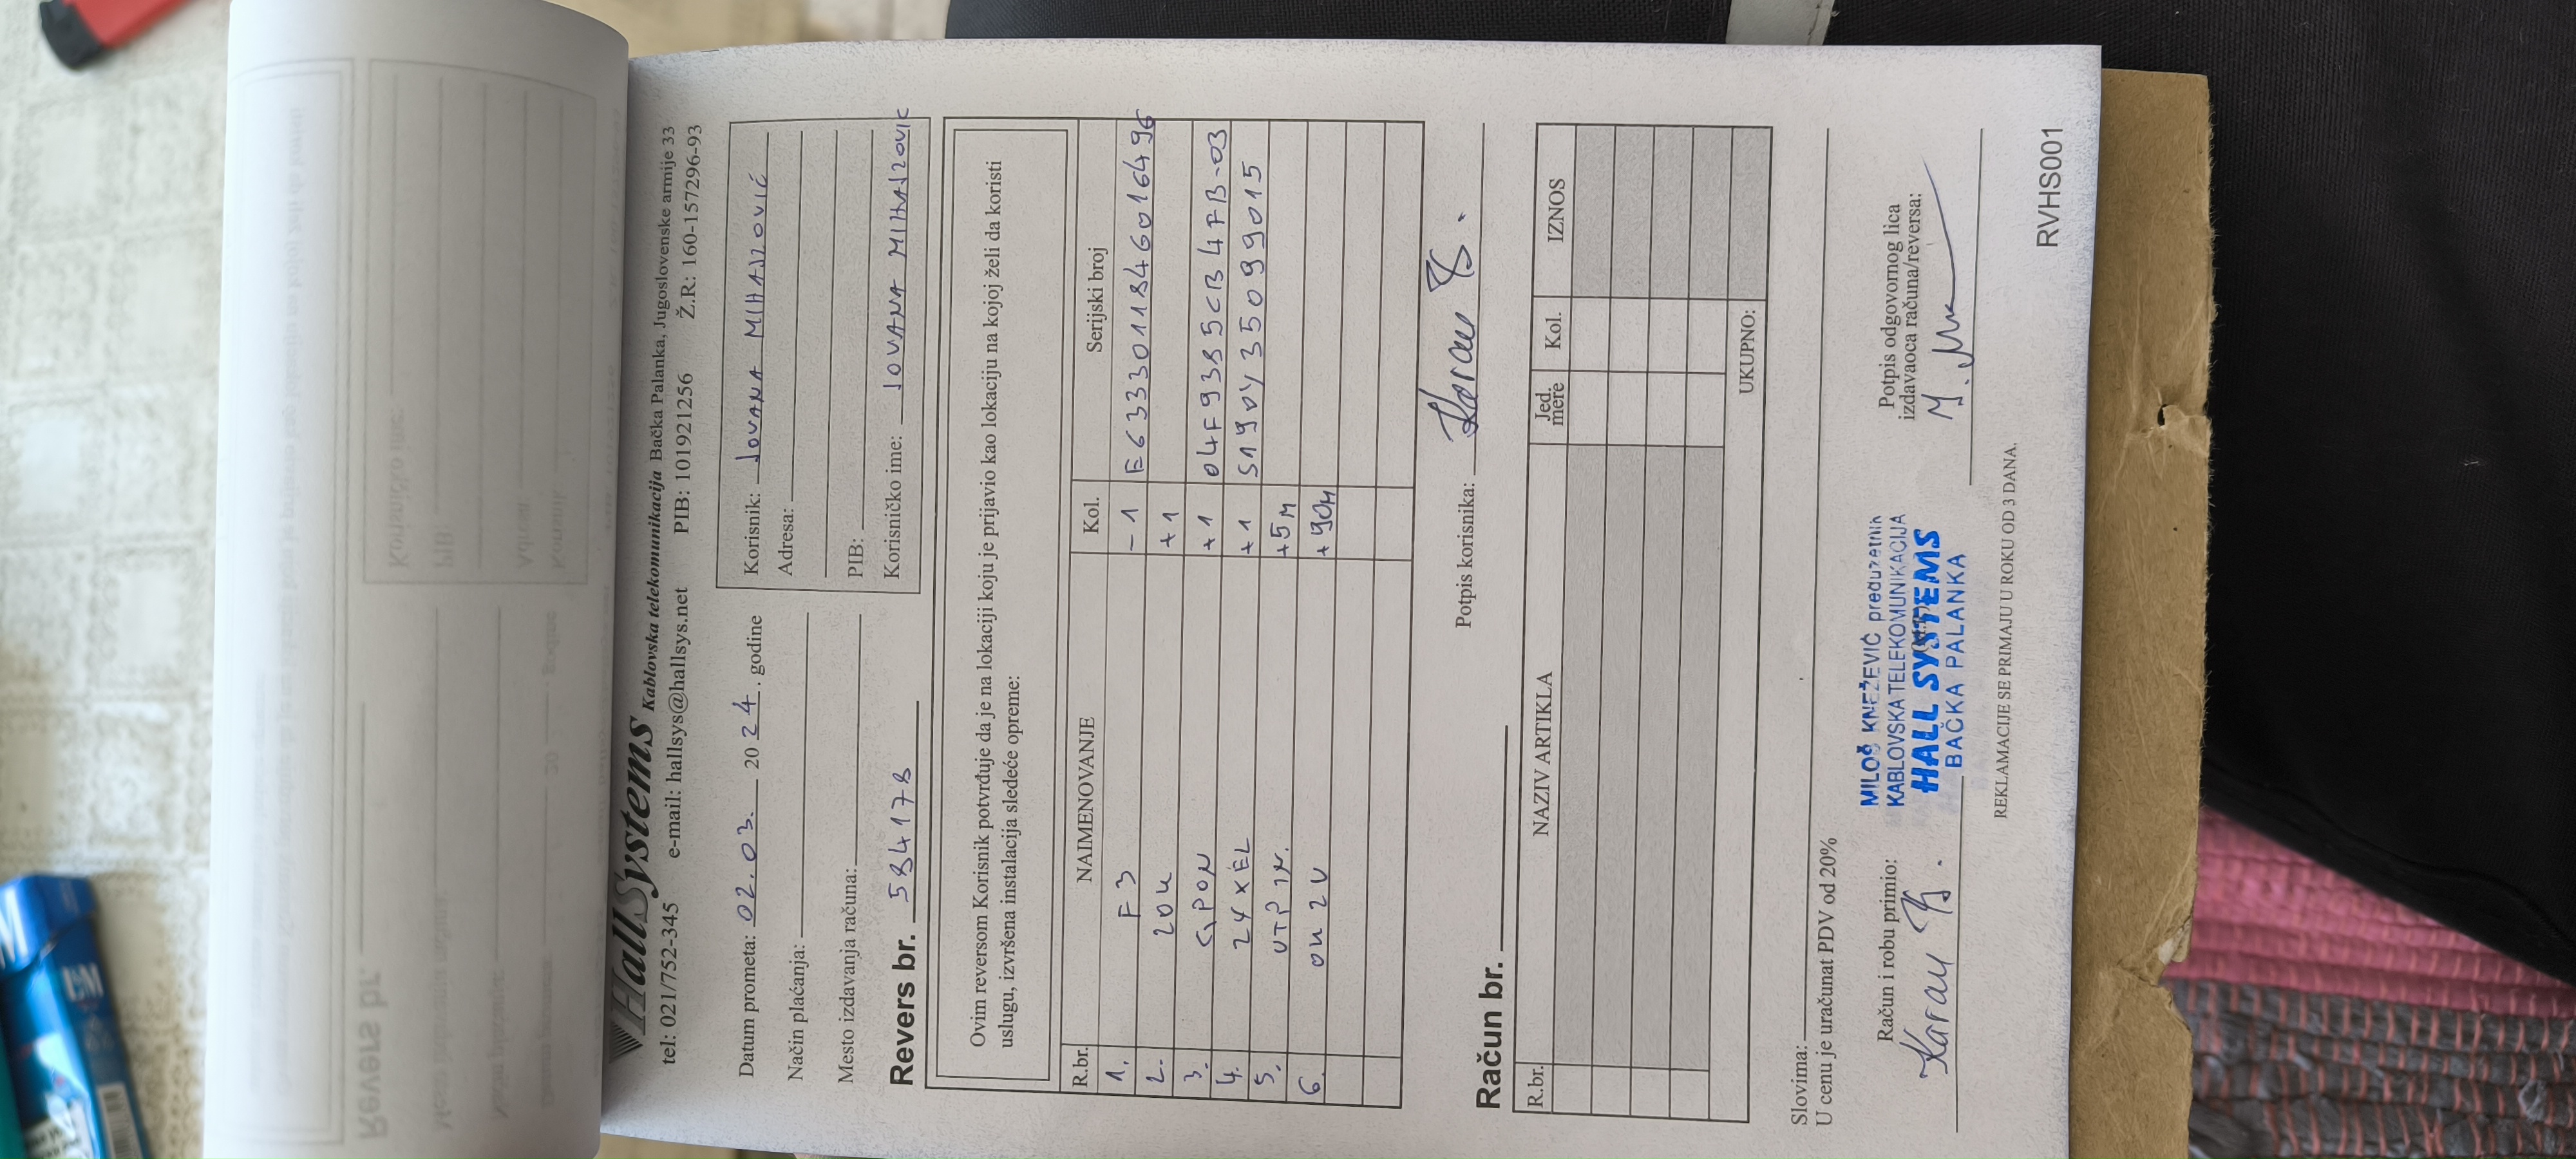 HallSystems Kablovska telekomunikacija Bačka Palanka, Jugoslovenske armije 33
tel: 021/752-345 e-mail: hallsys@hallsys.net PIB: 101921256 Ž.R.: 160-157296-93
Datum prometa: 02.03. 2024. godine
Način plaćanja:
Mesto izdavanja računa:
Korisnik: JOVANA MIHAJLOVIĆ
Adresa:
PIB:
Korisničko ime: JOVANA MIHAJLOVIC
Revers br. 584178
Ovim reversom Korisnik potvrđuje da je na lokaciji koju je prijavio kao lokaciju na kojoj želi da koristi
uslugu, izvršena instalacija sledeće opreme:
R.br. NAIMENOVANJE Kol. Serijski broj
1. F3 -1 E63330118460164 96
2. +1
3. GPON +1 04F9385CB4FB-03
4. ZYXEL +1 S190Y35099015
5. UTP +5M
6. +90M
Potpis korisnika: Karan
Račun br.
R.br. NAZIV ARTIKLA Jed. mere Kol. IZNOS
UKUPNO:
Slovima:
U cenu je uračunat PDV od 20%
Račun i robu primio:
Karan
MILOŠ KNEŽEVIĆ preduzetnik
KABLOVSKA TELEKOMUNIKACIJA
HALL SYSTEMS
BAČKA PALANKA
Potpis odgovornog lica
izdavaoca računa/reversa:
REKLAMACIJE SE PRIMAJU U ROKU OD 3 DANA.
RVHS001
Revers br.
L&M